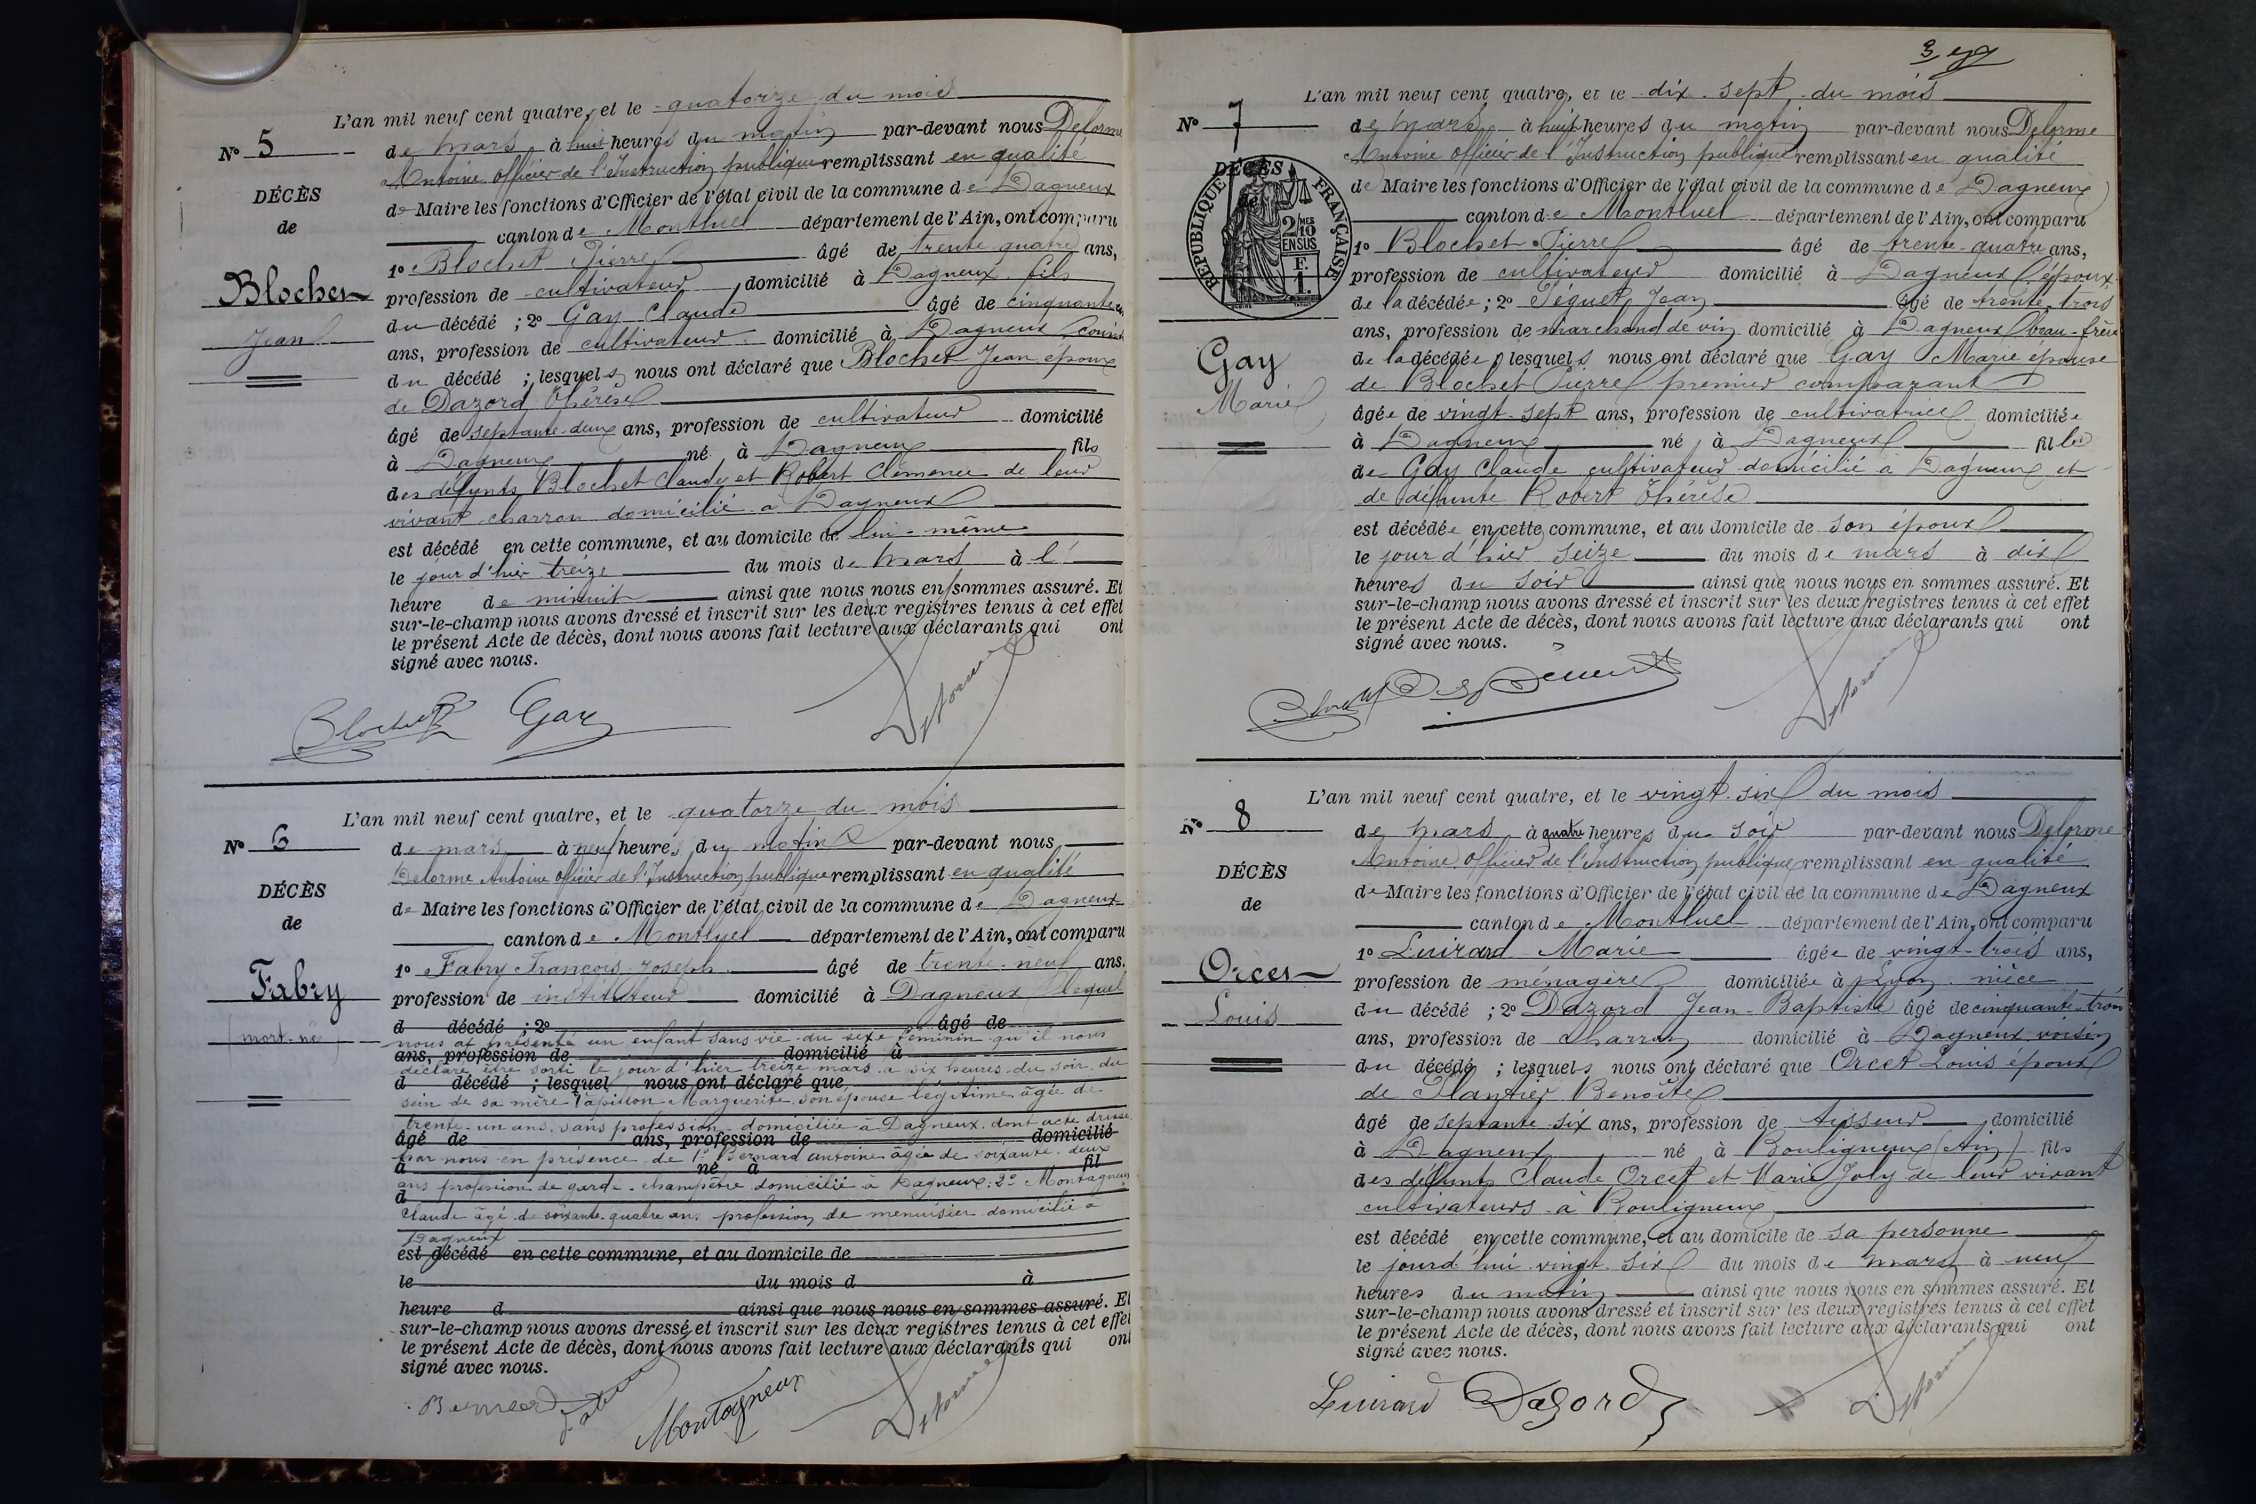 L'an mil neuf cent quatre, et le quatorze du mois
No 5
de mars à huit heures du matin par-devant nous Delorme
Antoine officier de l'Instruction publique remplissant en qualité
DÉCÈS
de Maire les fonctions d'Officier de l'état civil de la commune de Dagneux
de
canton de Montluel département de l'Ain, ont comparu
1o Blochet Pierre âgé de trente quatre ans,
Blochet
profession de cultivateur domicilié à Dagneux fils
du décédé ; 2o Gay Claude âgé de cinquante
Jean
ans, profession de cultivateur domicilié à Dagneux cousin
du décédé ; lesquels nous ont déclaré que Blochet Jean époux
de Dazord Thérèse
âgé de septante-deux ans, profession de cultivateur domicilié
à Dagneux né à Dagneux fils
des défunts Blochet Claude et Robert Clémence de leur
vivant charron domicilié à Dagneux
est décédé en cette commune, et au domicile de lui-même
le jour d'hier treize du mois de mars à l'
heure de minuit ainsi que nous nous en sommes assuré. Et
sur-le-champ nous avons dressé et inscrit sur les deux registres tenus à cet effet
le présent Acte de décès, dont nous avons fait lecture aux déclarants qui ont
signé avec nous.
Blochet Gay Delorme
L'an mil neuf cent quatre, et le quatorze du mois
No 6
de mars à neuf heures du matin par-devant nous
Delorme Antoine officier de l'Instruction publique remplissant en qualité
DÉCÈS
de Maire les fonctions d'Officier de l'état civil de la commune de Dagneux
de
canton de Montluel département de l'Ain, ont comparu
1o Fabry François Joseph âgé de trente-neuf ans.
Fabry
profession de instituteur domicilié à Dagneux lequel
d décédé ; 2o âgé de
(mort-né)
nous a présenté un enfant sans vie du sexe féminin qu'il nous
ans, profession de domicilié à
déclare être sorti le jour d'hier treize mars à six heures du soir du
d décédé ; lesquel nous ont déclaré que
sein de sa mère Papillon Marguerite son épouse légitime âgée de
trente-un ans, sans profession domiciliée à Dagneux, dont acte dressé
âgé de ans, profession de domicilié
par nous en présence de 1o Bernard Antoine âgé de soixante-deux
à né à fil
ans profession de garde-champêtre domicilié à Dagneux; 2o Montagneux
d
Claude âgé de soixante-quatre ans profession de menuisier domicilié à
Dagneux
est décédé en cette commune, et au domicile de
le du mois d à
heure d ainsi que nous nous en sommes assuré. Et
sur-le-champ nous avons dressé et inscrit sur les deux registres tenus à cet effet
le présent Acte de décès, dont nous avons fait lecture aux déclarants qui ont
signé avec nous.
Bernard Fabry Montagneux Delorme
3
L'an mil neuf cent quatre, et le dix-sept du mois
No 7
de mars à huit heures du matin par-devant nous Delorme
Antoine officier de l'Instruction publique remplissant en qualité
DÉCÈS
de Maire les fonctions d'Officier de l'état civil de la commune de Dagneux
RÉPUBLIQUE FRANÇAISE
2/10 EN SUS
F. 1.
canton de Montluel département de l'Ain, ont comparu
1o Blochet Pierre âgé de trente-quatre ans,
profession de cultivateur domicilié à Dagneux époux
de la décédée ; 2o Téguet Jean âgé de trente-trois
ans, profession de marchand de vin domicilié à Dagneux beau-frère
Gay
de la décédée lesquels nous ont déclaré que Gay Marie épouse
de Blochet Pierre premier comparant
Marie
âgée de vingt-sept ans, profession de cultivatrice domiciliée
à Dagneux né à Dagneux fille
de Gay Claude cultivateur domicilié à Dagneux et
de défunte Robert Thérèse
est décédée en cette commune, et au domicile de son époux
le jour d'hier seize du mois de mars à dix
heures du soir ainsi que nous nous en sommes assuré. Et
sur-le-champ nous avons dressé et inscrit sur les deux registres tenus à cet effet
le présent Acte de décès, dont nous avons fait lecture aux déclarants qui ont
signé avec nous.
Blochet Delorme
L'an mil neuf cent quatre, et le vingt-six du mois
No 8
de mars à quatre heures du soir par-devant nous Delorme
Antoine officier de l'Instruction publique remplissant en qualité
DÉCÈS
de Maire les fonctions d'Officier de l'état civil de la commune de Dagneux
de
canton de Montluel département de l'Ain, ont comparu
1o Luirard Marie âgée de vingt-trois ans,
Orcet
profession de ménagère domiciliée à Lyon nièce
du décédé ; 2o Dazord Jean-Baptiste âgé de cinquante-trois
Louis
ans, profession de charron domicilié à Dagneux voisin
du décédé ; lesquels nous ont déclaré que Orcet Louis époux
de Plantier Benoîte
âgé de septante-six ans, profession de tisseur domicilié
à Dagneux né à Bouligneux (Ain) fils
des défunts Claude Orcet et Marie Joly de leur vivant
cultivateurs à Bouligneux
est décédé en cette commune, et au domicile de sa personne
le jourd'hui vingt-six du mois de mars à neuf
heures du matin ainsi que nous nous en sommes assuré. Et
sur-le-champ nous avons dressé et inscrit sur les deux registres tenus à cet effet
le présent Acte de décès, dont nous avons fait lecture aux déclarants qui ont
signé avec nous.
Luirard Dazord Delorme